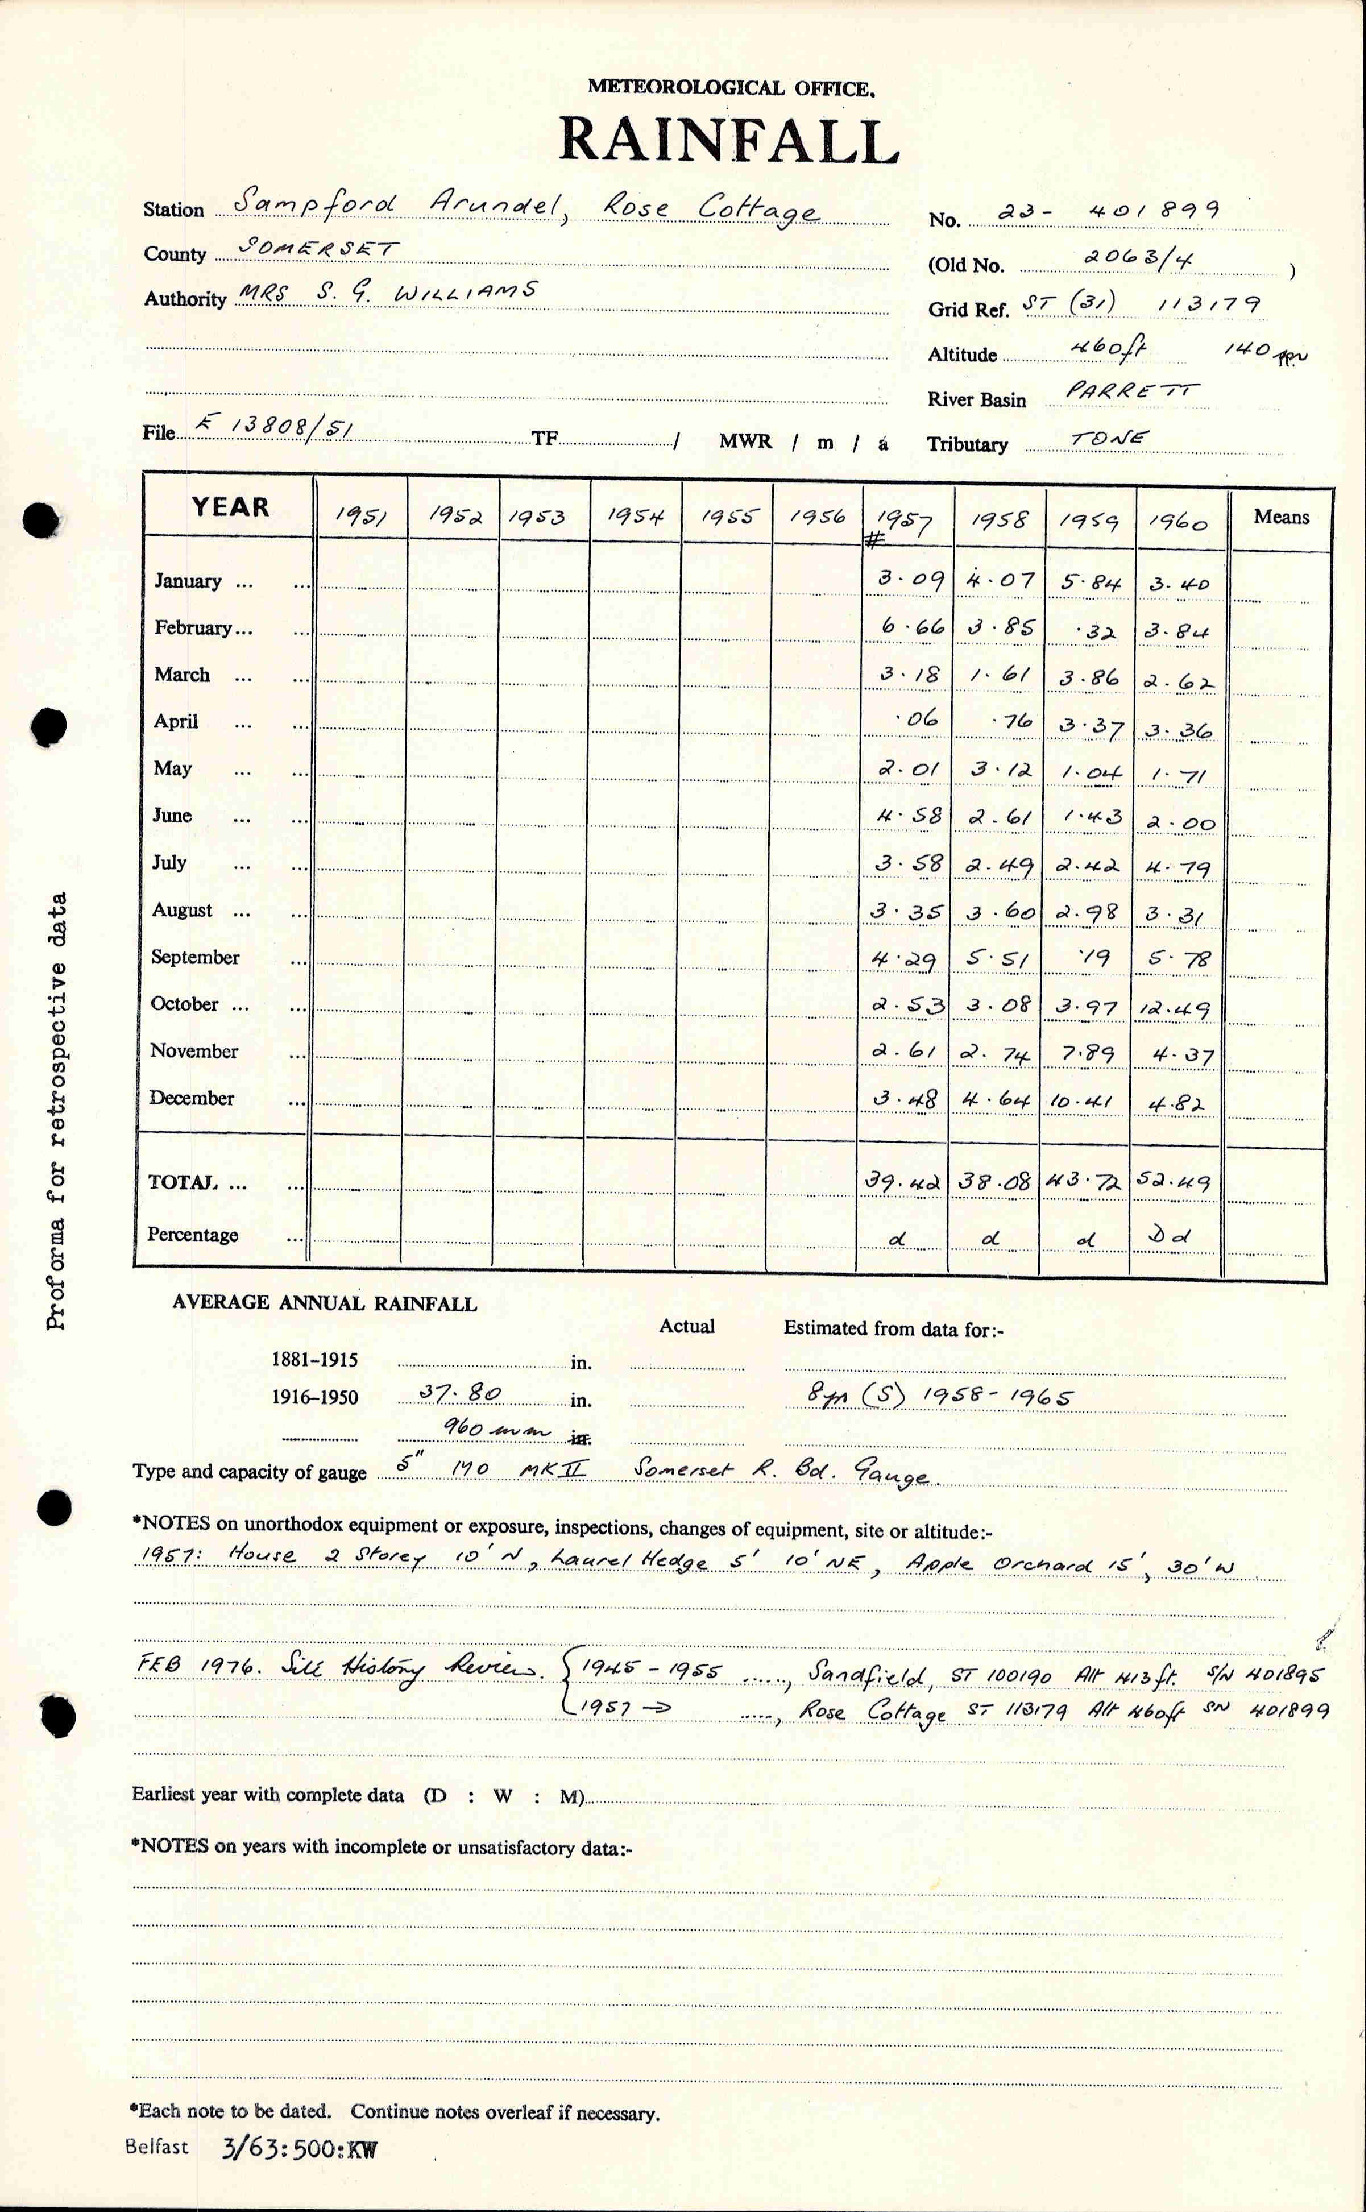 METEOROLOGICAL OFFICE.
RAINFALL
Station Sampford Arundel, Rose Cottage No. 23- 401899
County SOMERSET (Old No. 2063/4 )
Authority MRS S. G. WILLIAMS Grid Ref. ST (31) 113179
Altitude 460ft 140m
River Basin PARRETT
File E 13808/51 TF / MWR / m / a Tributary TONE
YEAR 1951 1952 1953 1954 1955 1956 1957 1958 1959 1960 Means
#
January ... ... 3.09 4.07 5.84 3.40
February... ... 6.66 3.85 .32 3.84
March ... ... 3.18 1.61 3.86 2.62
April ... ... .06 .76 3.37 3.36
May ... ... 2.01 3.12 1.04 1.71
June ... ... 4.58 2.61 1.43 2.00
July ... ... 3.58 2.49 2.42 4.79
August ... ... 3.35 3.60 2.98 3.31
September ... 4.29 5.51 .19 5.78
October ... ... 2.53 3.08 3.97 12.49
November ... 2.61 2.74 7.89 4.37
December ... 3.48 4.64 10.41 4.82
TOTAL ... ... 39.42 38.08 43.72 52.49
Percentage ... d d d Dd
Proforma for retrospective data
AVERAGE ANNUAL RAINFALL
Actual Estimated from data for:-
1881-1915 in.
1916-1950 37.80 in. 8yr (S) 1958-1965
960 mm in.
Type and capacity of gauge 5" MO MK II Somerset R. Bd. Gauge.
*NOTES on unorthodox equipment or exposure, inspections, changes of equipment, site or altitude:-
1957: House 2 Storey 10' N, Laurel Hedge 5' 10' NE, Apple Orchard 15', 30' W
FEB 1976. Site History Review. { 1945-1955 ....., Sandfield, ST 100190 Alt 413ft. S/N 401895
1957 → ....., Rose Cottage ST 113179 Alt 460ft SN 401899
Earliest year with complete data (D : W : M)
*NOTES on years with incomplete or unsatisfactory data:-
*Each note to be dated. Continue notes overleaf if necessary.
Belfast 3/63:500:KW